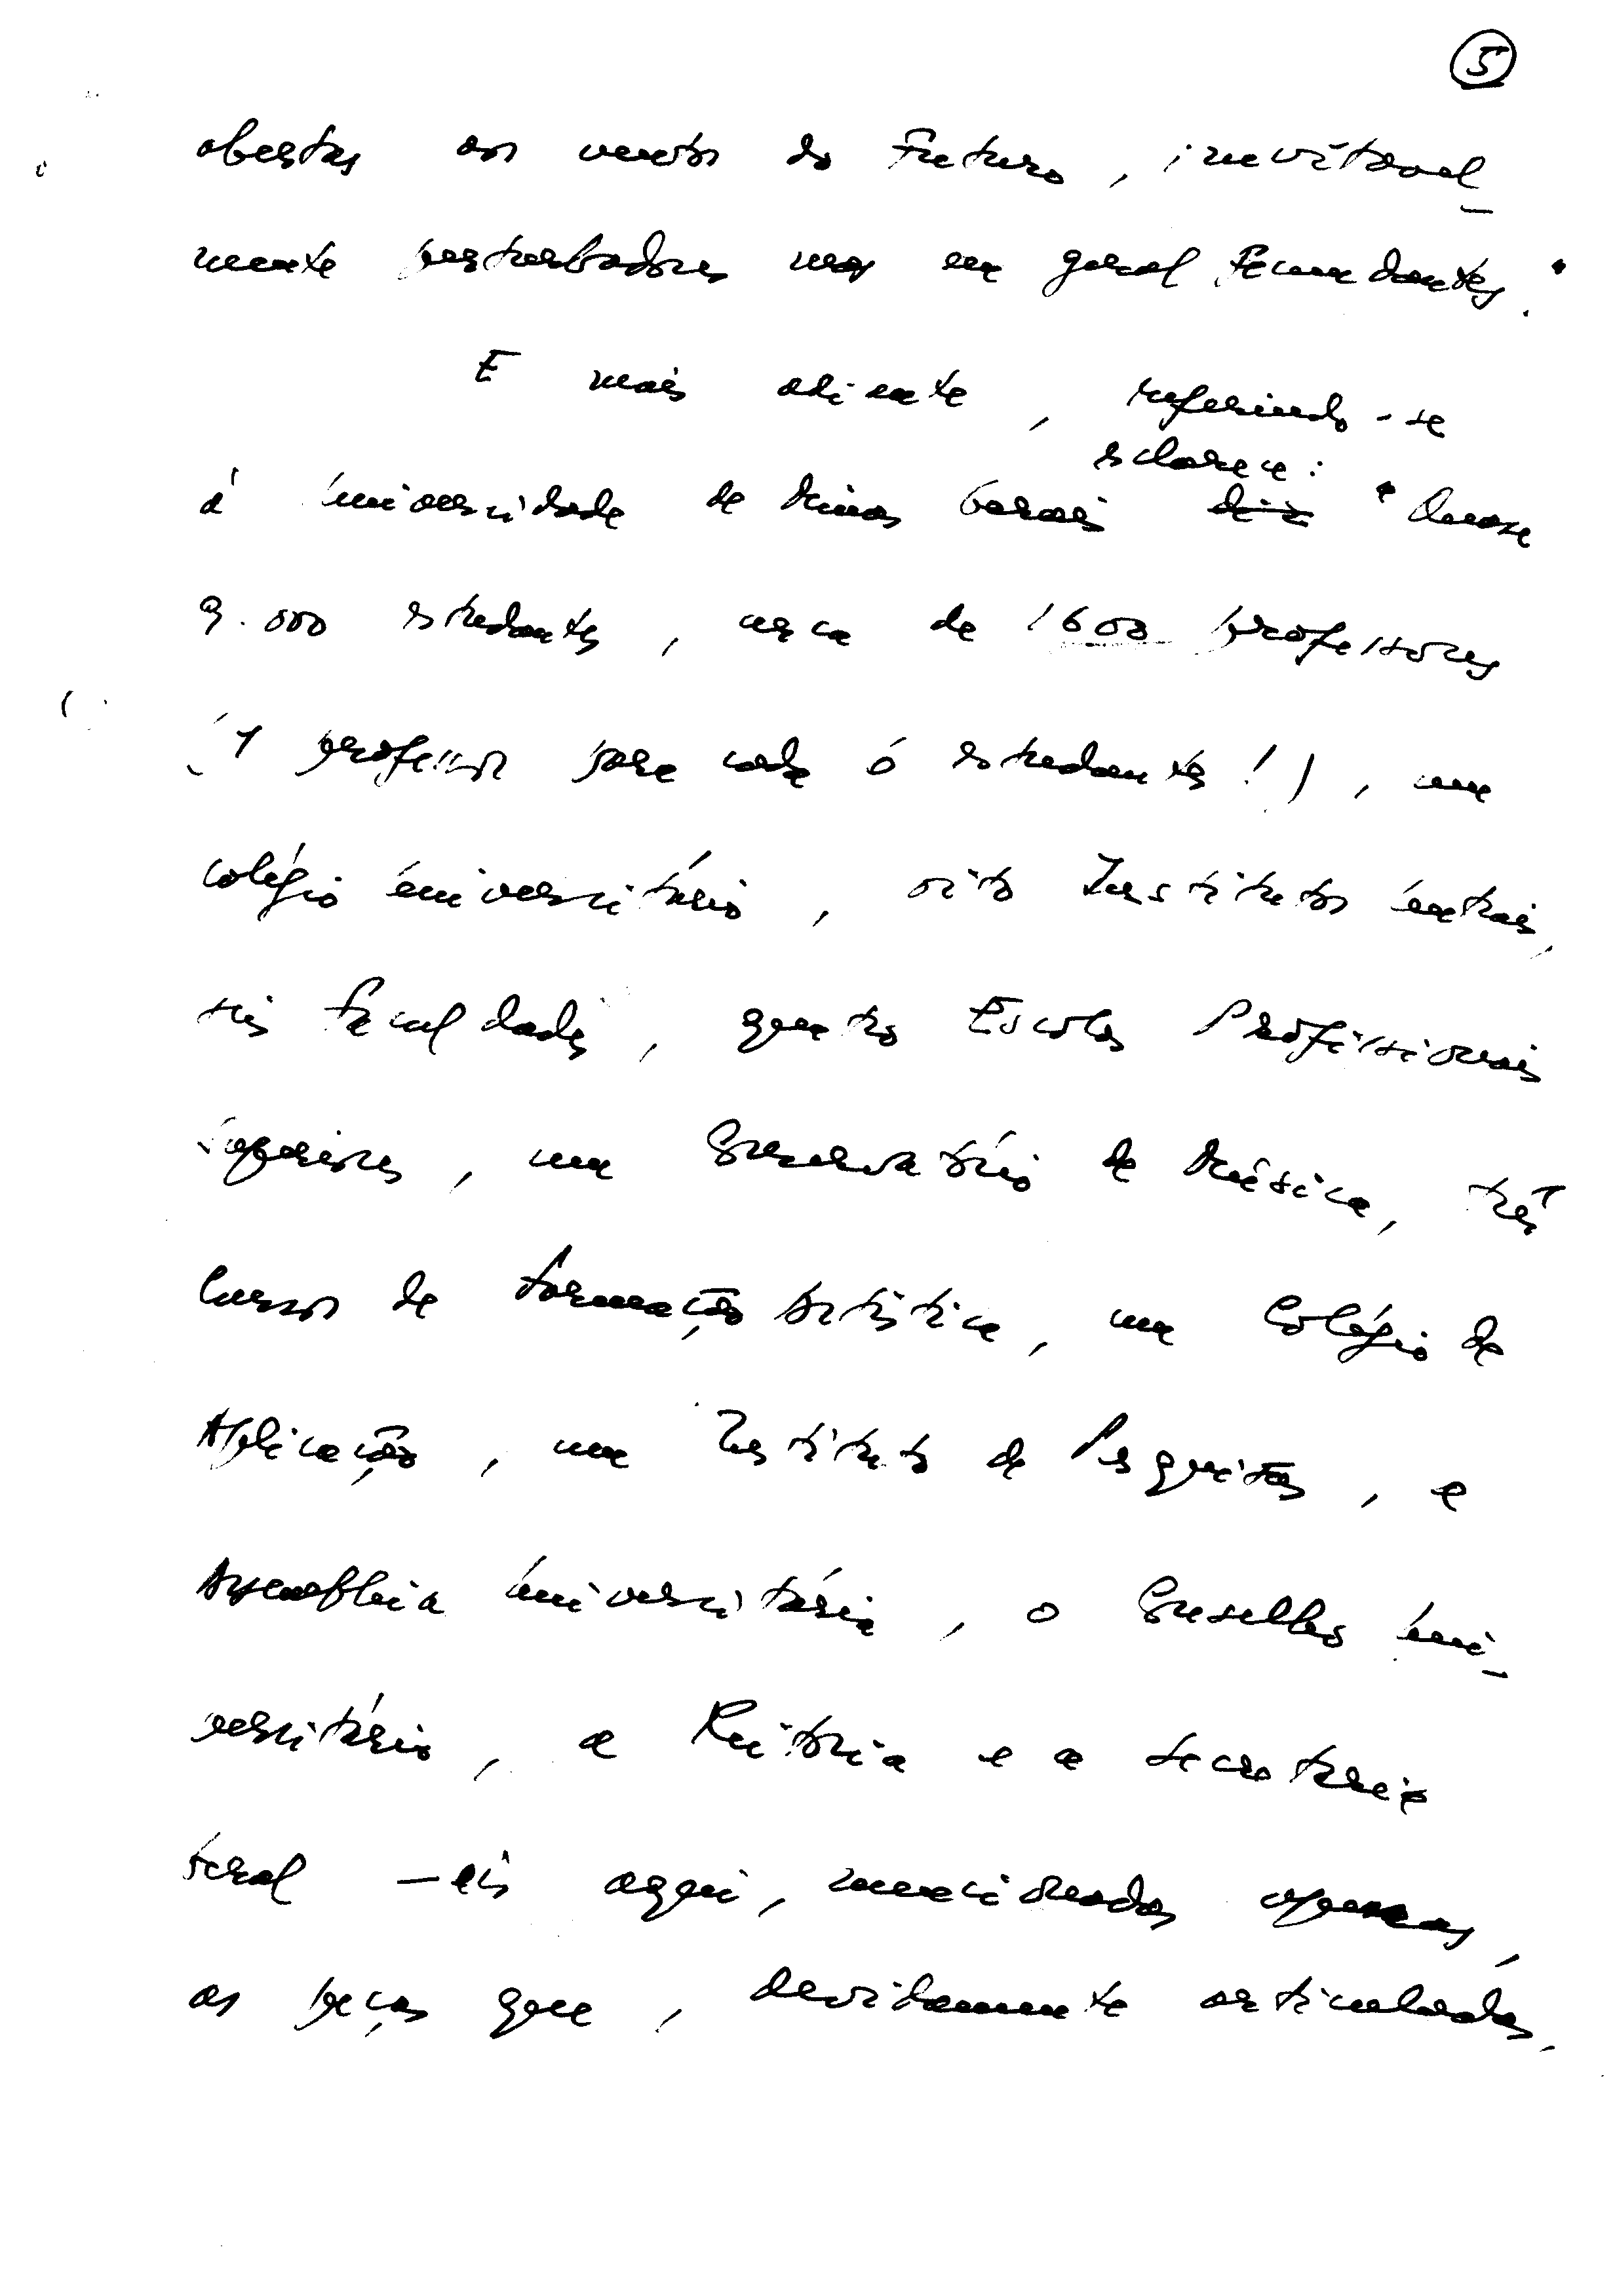 5
abertas aos ventos do Futuro, inevitavel-
mente perturbadores mas em geral fecundantes."
E mais adiante, referindo-se
esclarece:
à Universidade de Minas Gerais diz "Quase
9.000 estudantes, cerca de 1600 professores
(1 professor para cada 6 estudantes!), um
Colégio Universitário, oito Institutos Centrais,
seis Faculdades, quatro Escolas Profissionais
Superiores, um Conservatório de Música, três
Cursos de Formação Artística, um Colégio de
Aplicação, um Instituto de Pesquisas, a
Assembleia Universitária, o Conselho Uni-
versitário, a Reitoria e a Secretaria
Geral — eis aqui, mencionadas apenas,
as peças que, devidamente articuladas,